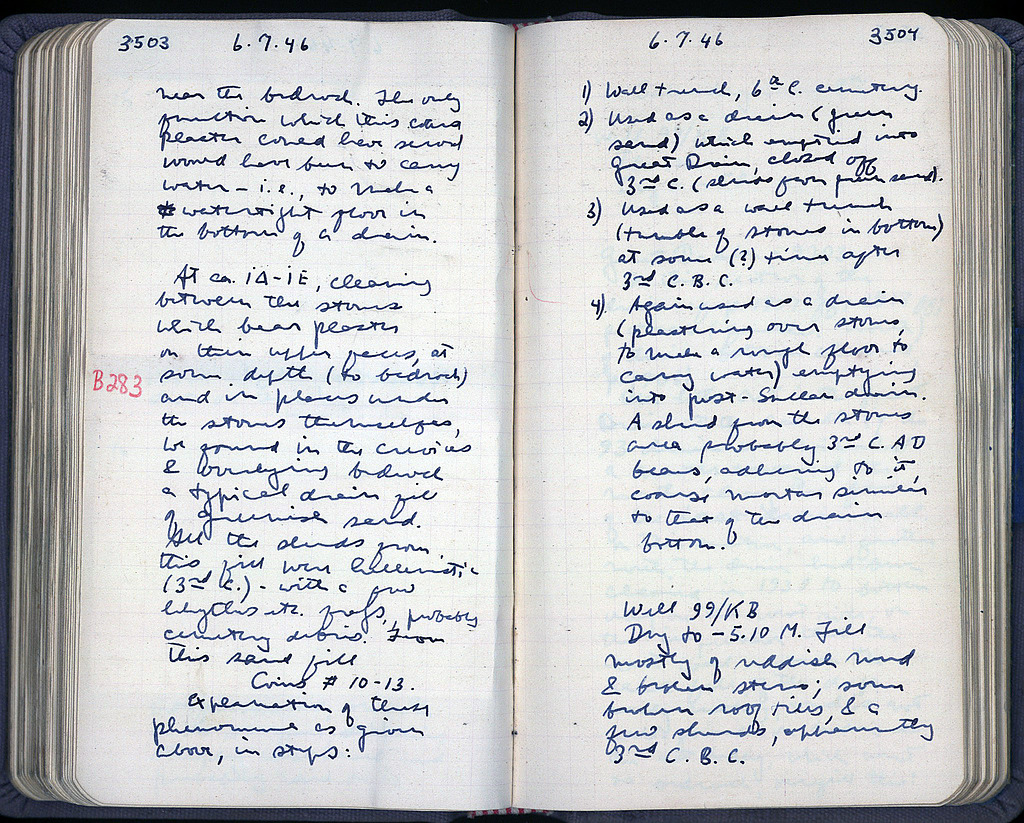 3503
6.7.46
near the bedrock. The only
function which this coarse
plaster could have served
would have been to carry
water – i.e., to make a
watertight floor in
the bottom of a drain.
At ca. 1A-1E, clearing
between the stones
which bear plaster
on their upper faces, at
some depth (to bedrock)
B283
and in places under
the stones themselves,
we found in the crevices
& overlying bedrock
a typical drain fill
of greenish sand.
All the sherds from
this fill were hellenistic
(3rd C.) - with a few
lekythis etc. frags., probably
cemetery debris. From
this sand fill
Coins # 10-13.
Explanation of these
phenomena as given
above, in steps:
6.7.46
3504
1) Wall trench, 6th C. cemetery.
2) Used as a drain (green
sand) which emptied into
Great Drain, closed off
3rd C. (sherds from green sand).
3) Used as a wall trench
(tumble of stones in bottom)
at some (?) time after
3rd C. B.C.
4) Again used as a drain
(plastering over stones,
to make a rough floor to
carry water) emptying
into post-Sullan drain.
A sherd from the stones
area probably 3rd C. AD
bears, adhering to it,
coarse mortar similar
to that of the drain
bottom.
Well 99/KB
Dug to -5.10 M. Fill
mostly of reddish mud
& broken stones; some
broken roof tiles, & a
few sherds, apparently
3rd C. B.C.